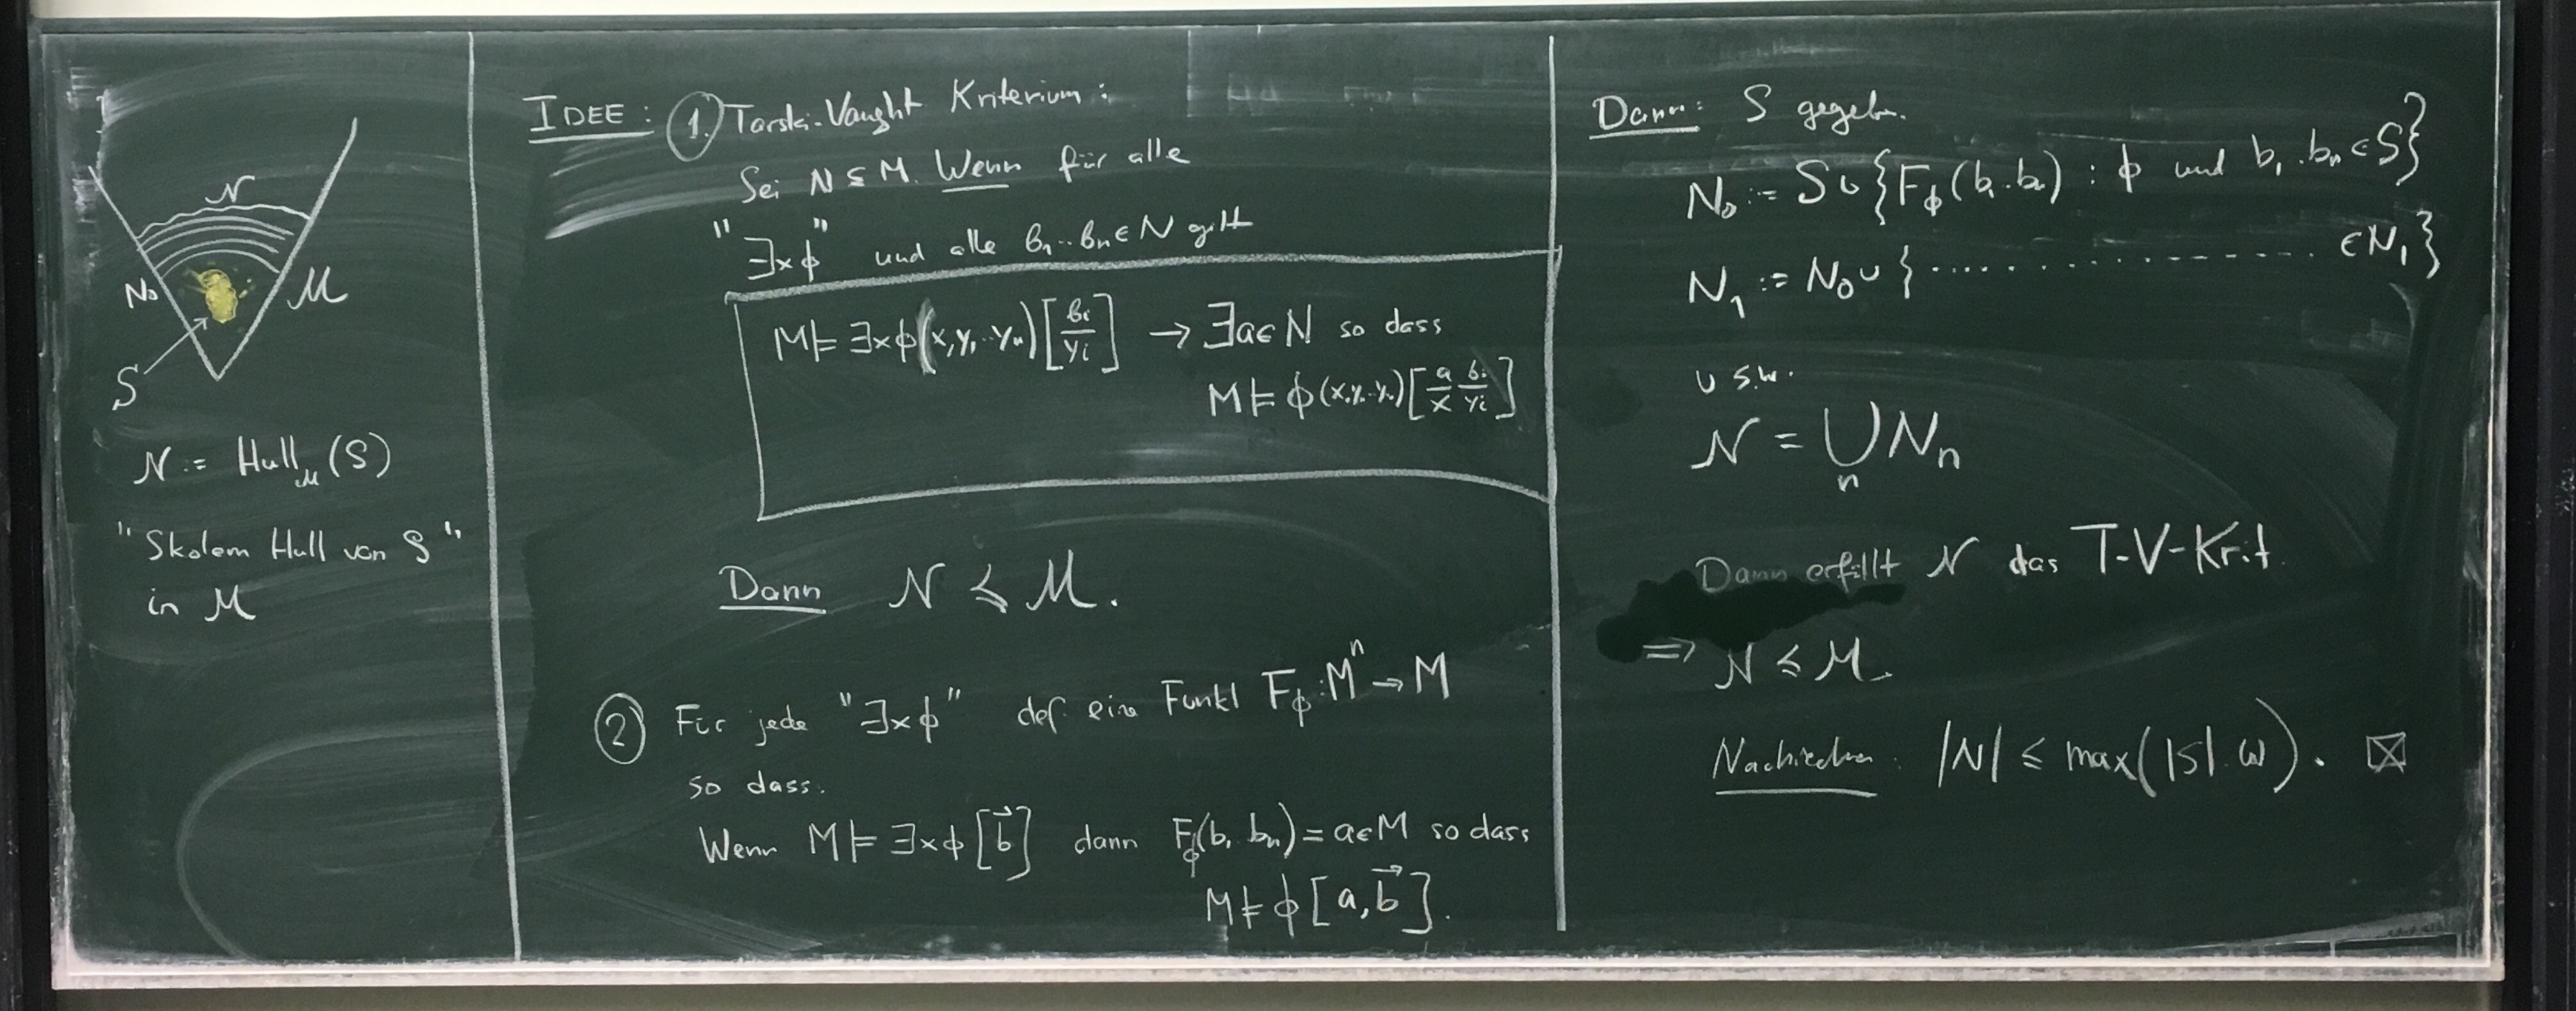 N
N₀
M
S
N := Hull_M (S)
"Skolem Hull von S"
in M
IDEE: 1. Tarski-Vaught Kriterium:
Sei N ⊆ M. Wenn für alle
"∃xϕ" und alle b₁...bₙ ∈ N gilt
M ⊨ ∃xϕ(x,y₁...yₙ)[bᵢ/yᵢ] → ∃a∈N so dass
M ⊨ ϕ(x,y₁...yₙ)[a/x bᵢ/yᵢ]
Dann N ≼ M.
2 Für jede "∃xϕ" def. eine Funkt F_ϕ: Mⁿ → M
so dass.
Wenn M ⊨ ∃xϕ[b⃗] dann F_ϕ(b₁ bₙ) = a∈M so dass
M ⊨ ϕ[a,b⃗].
Dann: S gegeben.
N₀ := S ∪ {F_ϕ(b₁..bₙ) : ϕ und b₁..bₙ ∈ S}
N₁ := N₀ ∪ {.................. ∈ N₁}
u.s.w.
N = ⋃ₙ Nₙ
Dann erfüllt N das T-V-Krit.
⇒ N ≼ M.
|N| ≤ max(|S|.ω). ☒